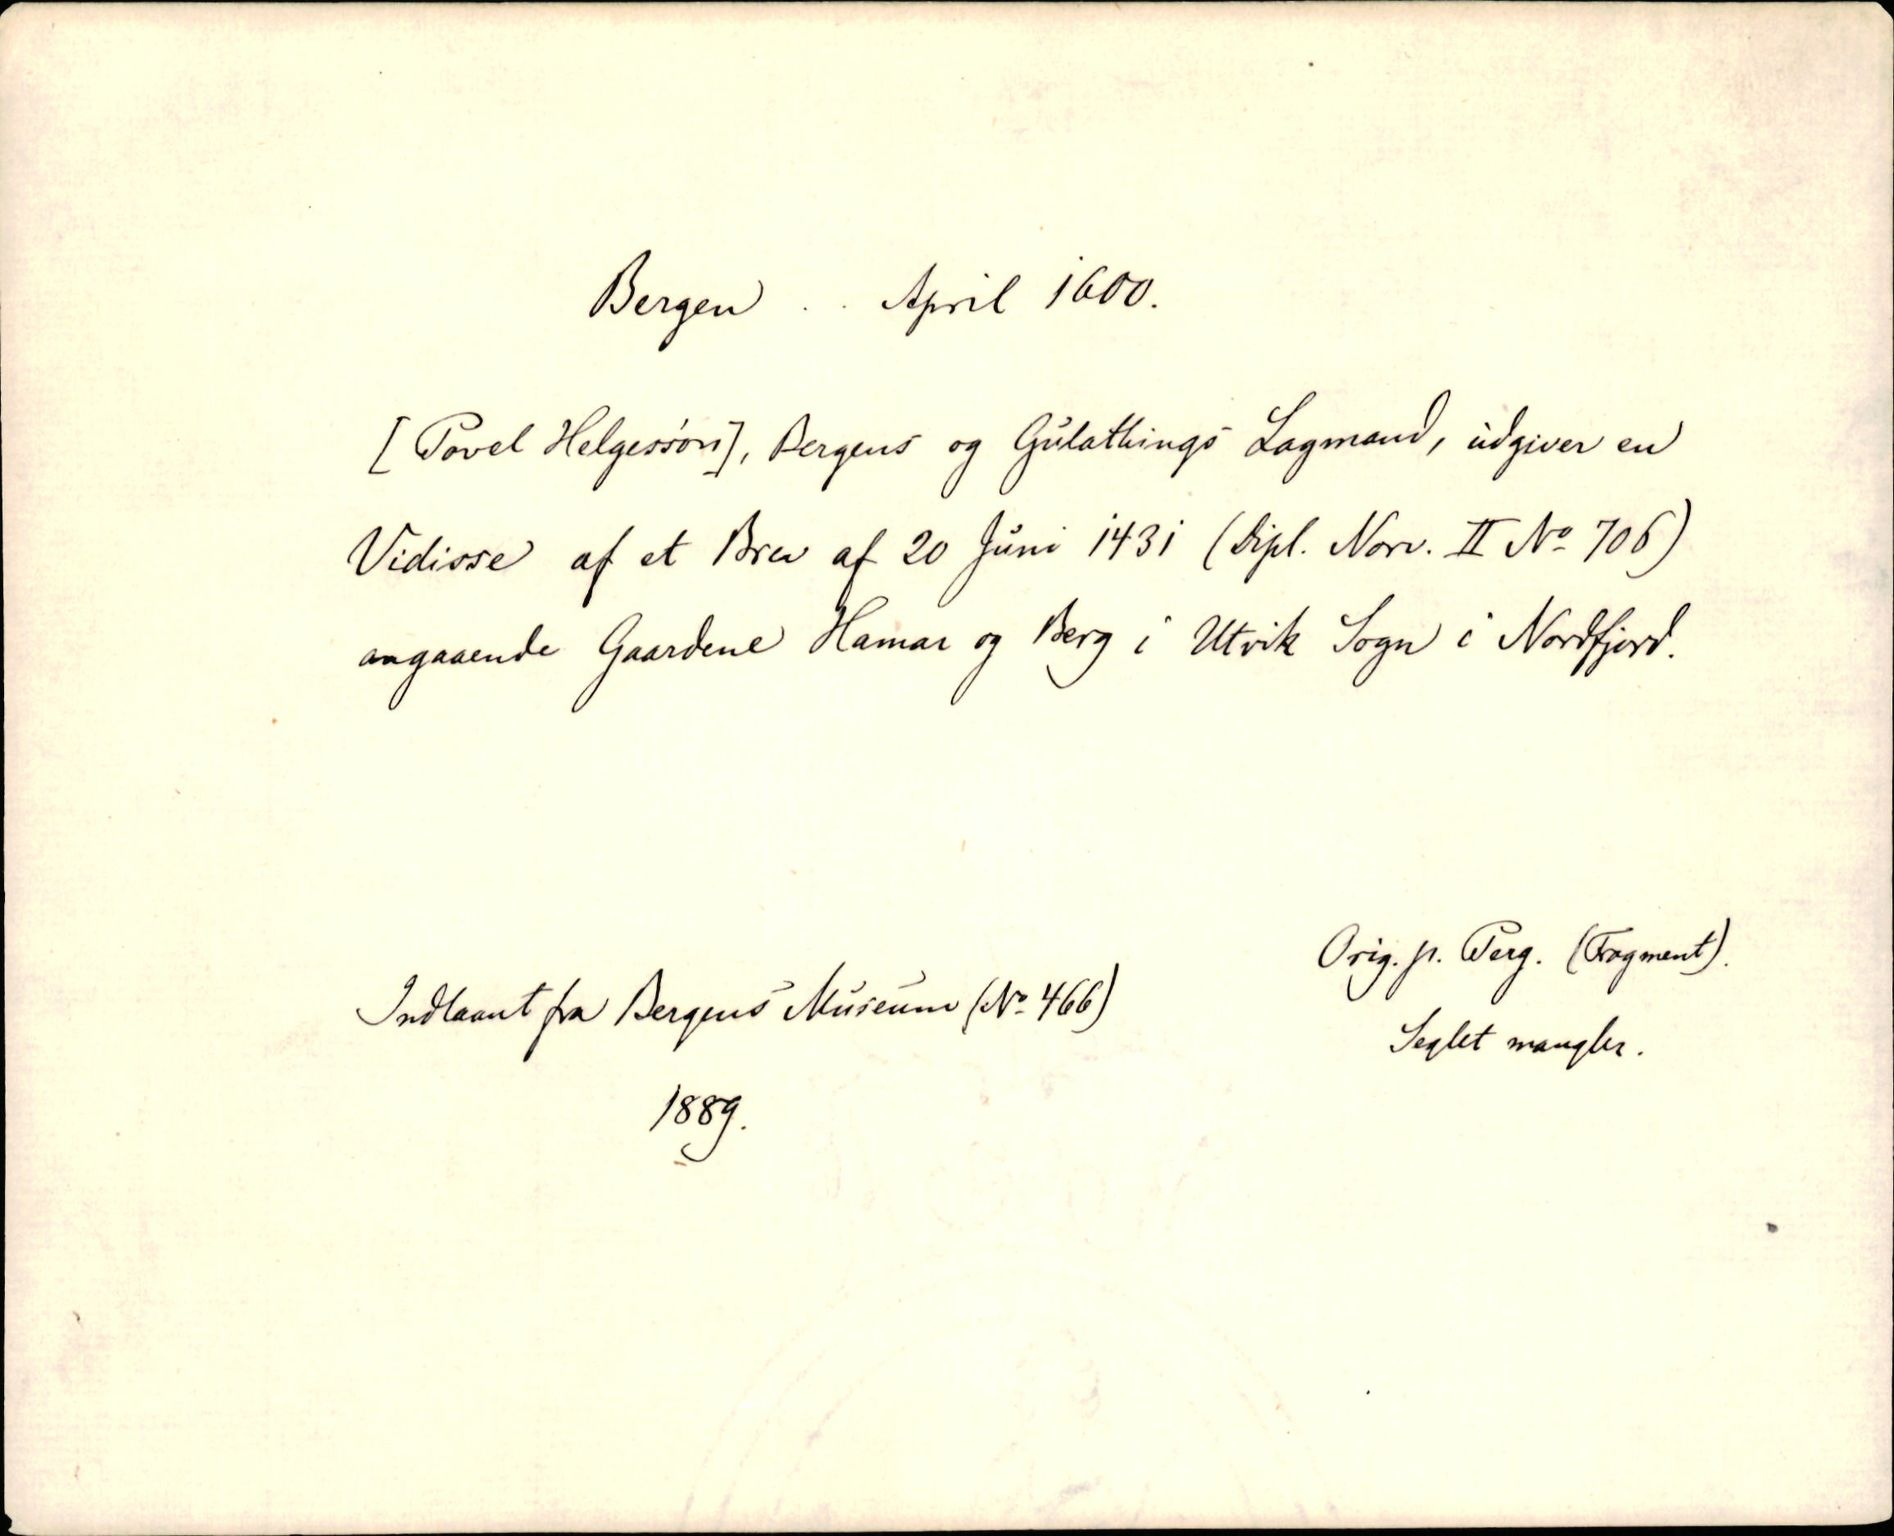 Bergen . . April 1600.
[Povel Helgessøn], Bergens og Gulathings Lagmand, udgiver en
Vidisse af et Brev af 20 Juni 1431 (Dipl. Norv. II No 706)
angaaende Gaardene Hamar og Berg i Utvik Sogn i Nordfjord.
Orig. p. Perg. (Fragment).
Indlaant fra Bergens Museum (No 466)
Seglet mangler.
1889.